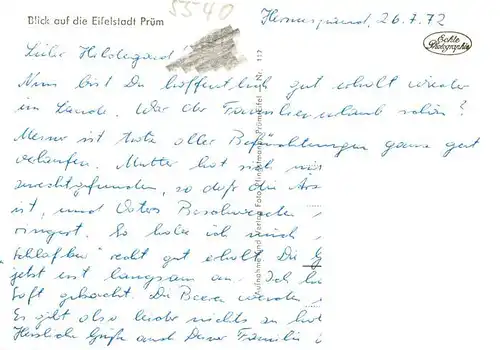 5540
Blick auf die Eifelstadt Prüm
Hermespand, 26.7.72
Echte Photographie
Liebe Hildegard!
Nun bist Du hoffentlich gut erholt wieder
im Lande. War der Familienurlaub schön?
Meiner ist trotz aller Befürchtungen ganz gut
verlaufen. Mutter hat sich
zurechtgefunden, so daß die
ist, und Vaters Beschwerden
ringert. So habe ich mich
Schlafkur" recht gut erholt. Die
jetzt erst langsam an. Ich
Saft gebracht. Die Beeren werden
Es gibt also leider nichts zu
Herzliche Grüße auch Deiner Familie
Aufnahme und Verlag Foto Prüm/Eifel Nr. 117